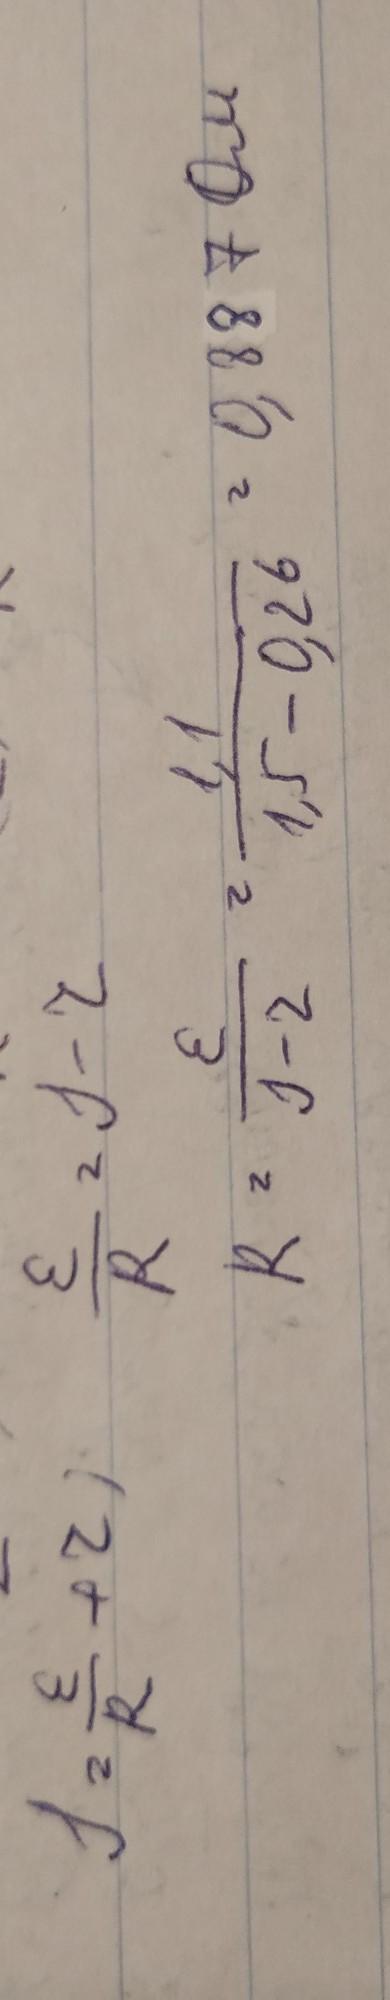 J = ε/R + r) ε/R = J - r
R = ε/(J - r) = 1,1/(1,5 - 0,26) = 0,887 Ом